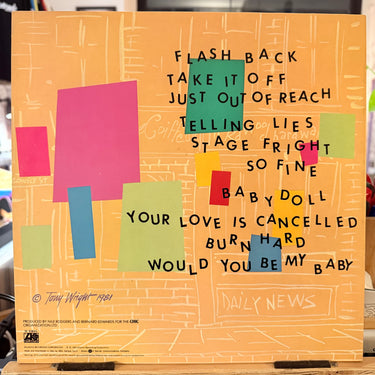 FLASH BACK
TAKE IT OFF
JUST OUT OF REACH
TELLING LIES
STAGE FRIGHT
SO FINE
BABY DOLL
YOUR LOVE IS CANCELLED
BURN HARD
WOULD YOU BE MY BABY
© Tony Wright 1981
DAILY NEWS
PRODUCED BY NILE RODGERS AND BERNARD EDWARDS FOR THE CHIC
ORGANIZATION LTD.